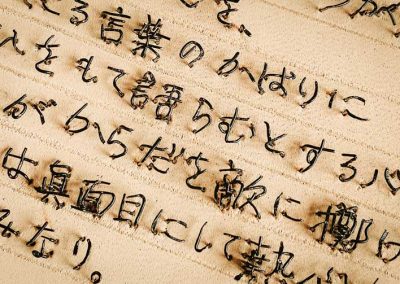 を、
る言葉のかはりに
をもて語らむとする
がからだを敵に擲
は眞面目にして熱
みなり。